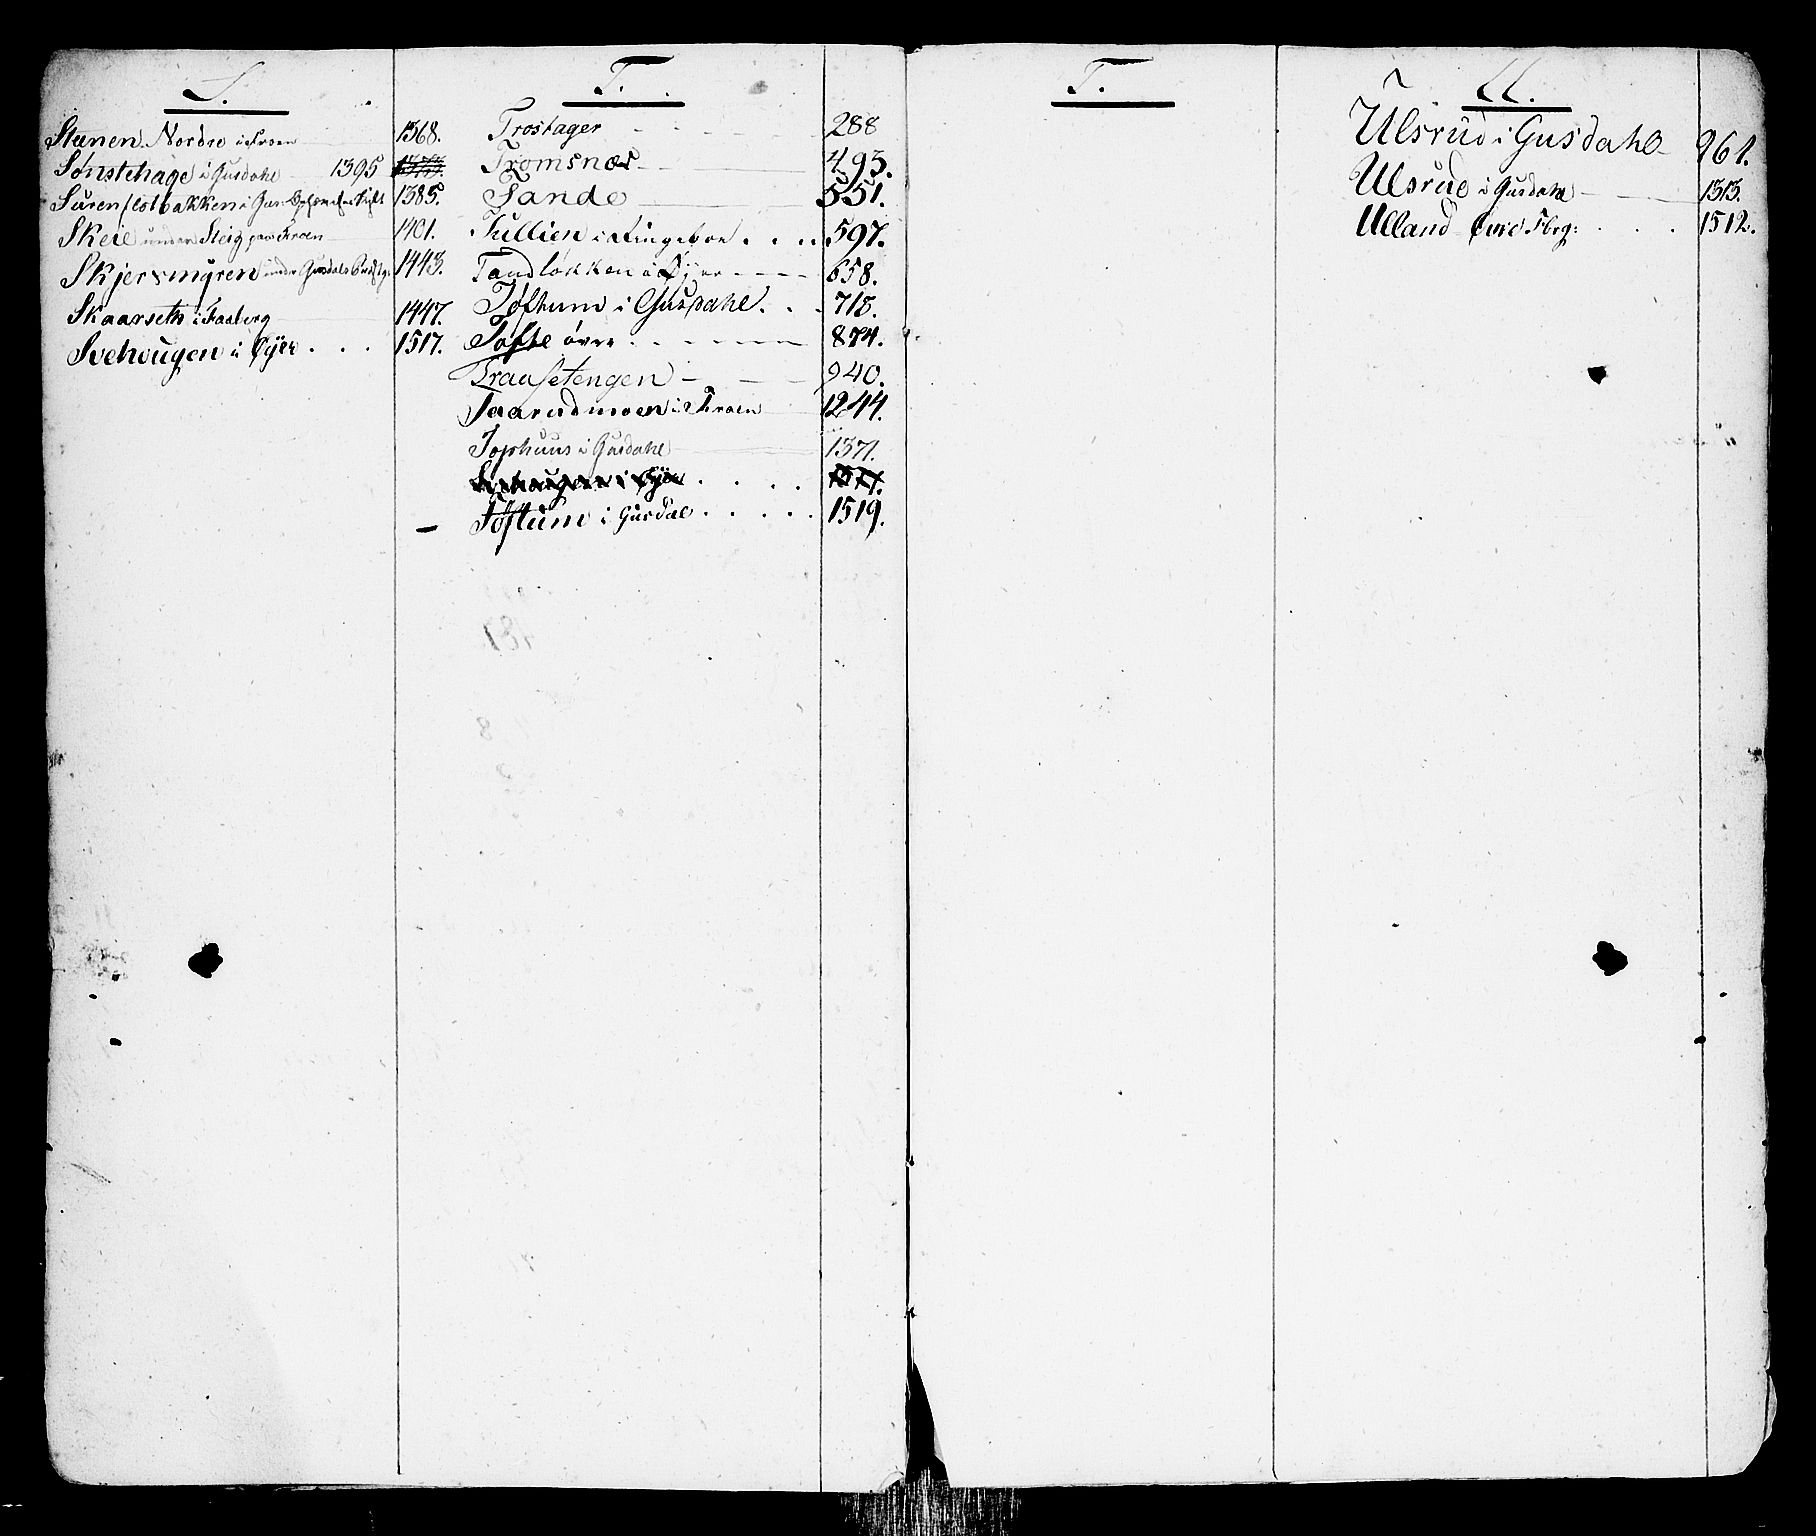 S.
Steenen Nordre i Froen 1368.
Sønstehage i Gusdahl 1395
Suren 1385.
Skeie under Steig paa Froen 1401.
Skjersmyren under Gusdals 1443.
Skaarseth i Faaberg 1447.
Svehougen i Øyer . . . 1517.
T.
Trostager 288
Tromsnæs 493.
Tande 551.
Tullien i Ringeboe . . . . 597.
Tandløkken i Øyer 658.
Tøfthum i Gusdahl . . . 718.
Tofte øvre 874.
Traasetengen 940.
Taarudmoen i Froen 1244.
Tophuus i Gusdahl 1371.
Svehougen i Øyer . . . . 1517.
– Tøftum i Gusdal . . . . . 1519.
T.
U.
Ulsrud i Gusdahl 961.
Ulsrud i Gusdahl 1313.
Ulland Fbrg: . . . 1512.